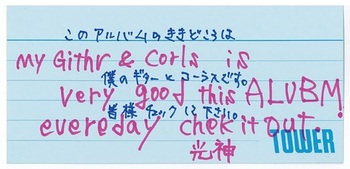 このアルバムのききどころは
my Githr & Corls is
僕のギターとコーラスです。
very good this ALVBM!
皆様チェックして下さい。
evereday chek it out.
光神
TOWER